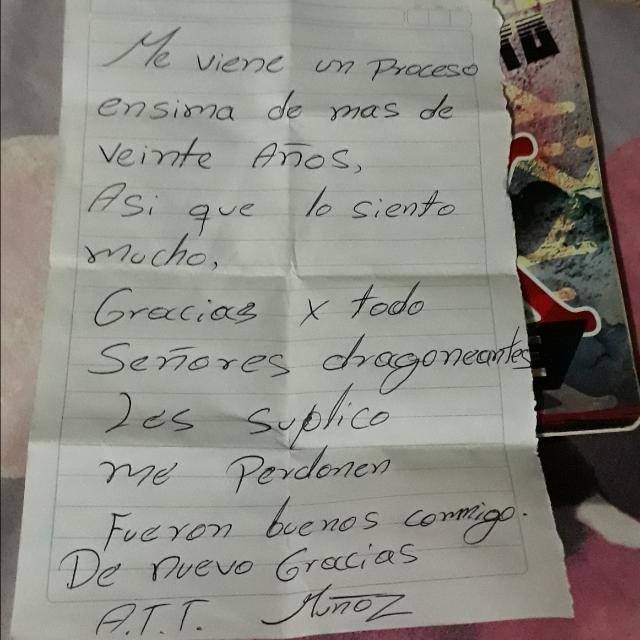 Me viene un Proceso
ensima de mas de
veinte Años,
Asi que lo siento
mucho,
Gracias x todo
Señores dragoneantes
Les suplico
me Perdonen
Fueron buenos conmigo.
De nuevo Gracias
A.T.T. Muñoz